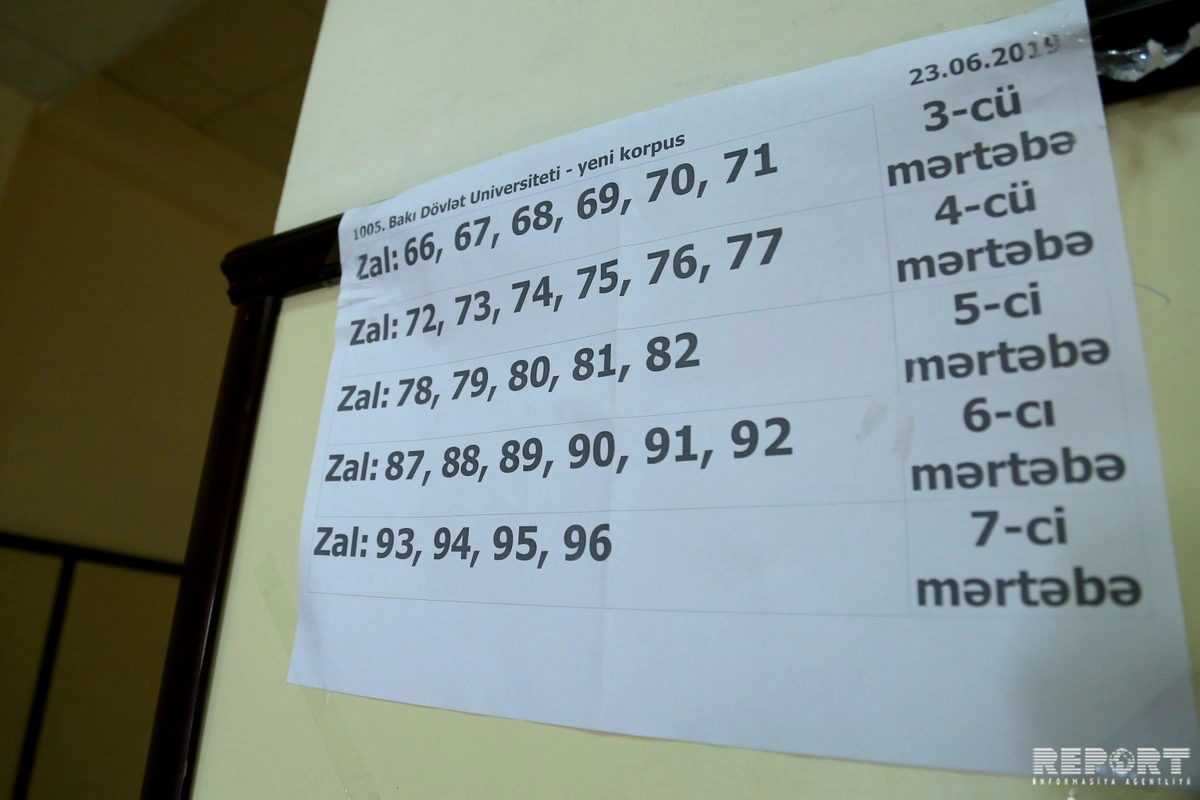 23.06.2019
1005. Bakı Dövlət Universiteti - yeni korpus
Zal: 66, 67, 68, 69, 70, 71
3-cü
mərtəbə
Zal: 72, 73, 74, 75, 76, 77
4-cü
mərtəbə
Zal: 78, 79, 80, 81, 82
5-ci
mərtəbə
Zal: 87, 88, 89, 90, 91, 92
6-cı
mərtəbə
Zal: 93, 94, 95, 96
7-ci
mərtəbə
REPORT
İNFORMASİYA AGENTLİYİ